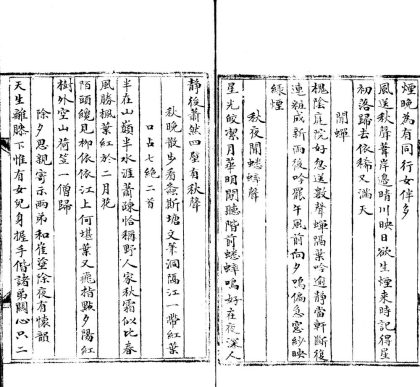 煙晚為有同行女伴多
風送秋聲葦岸邊晴川映日欲生煙來時記得星
初落歸去依稀又滿天
聞蟬
槐陰庭院好忽送數聲蟬隔葉吟逾靜當軒斷復
連粧成新雨後吟罷午風前向夕鳴偏急窓紗映
綠煙
秋夜聞蟋蟀聲
星光皎潔月華明閒聽階前蟋蟀鳴好在夜深人
靜後蕭然四壁有秋聲
秋晚散步看螽斯塘文筆洞隔江一帶紅葉
口占七絕二首
半在山巔半水涯蕭疎恰稱野人家秋霜似比春
風勝楓葉紅於二月花
陌頭纔見柳依依江上何堪葉又飛指點夕陽紅
樹外空山荷笠一僧歸
除夕思親寄示兩弟和崔塗除夜有懷韻
天生離膝下惟有女兒身握手偕諸弟關心只二